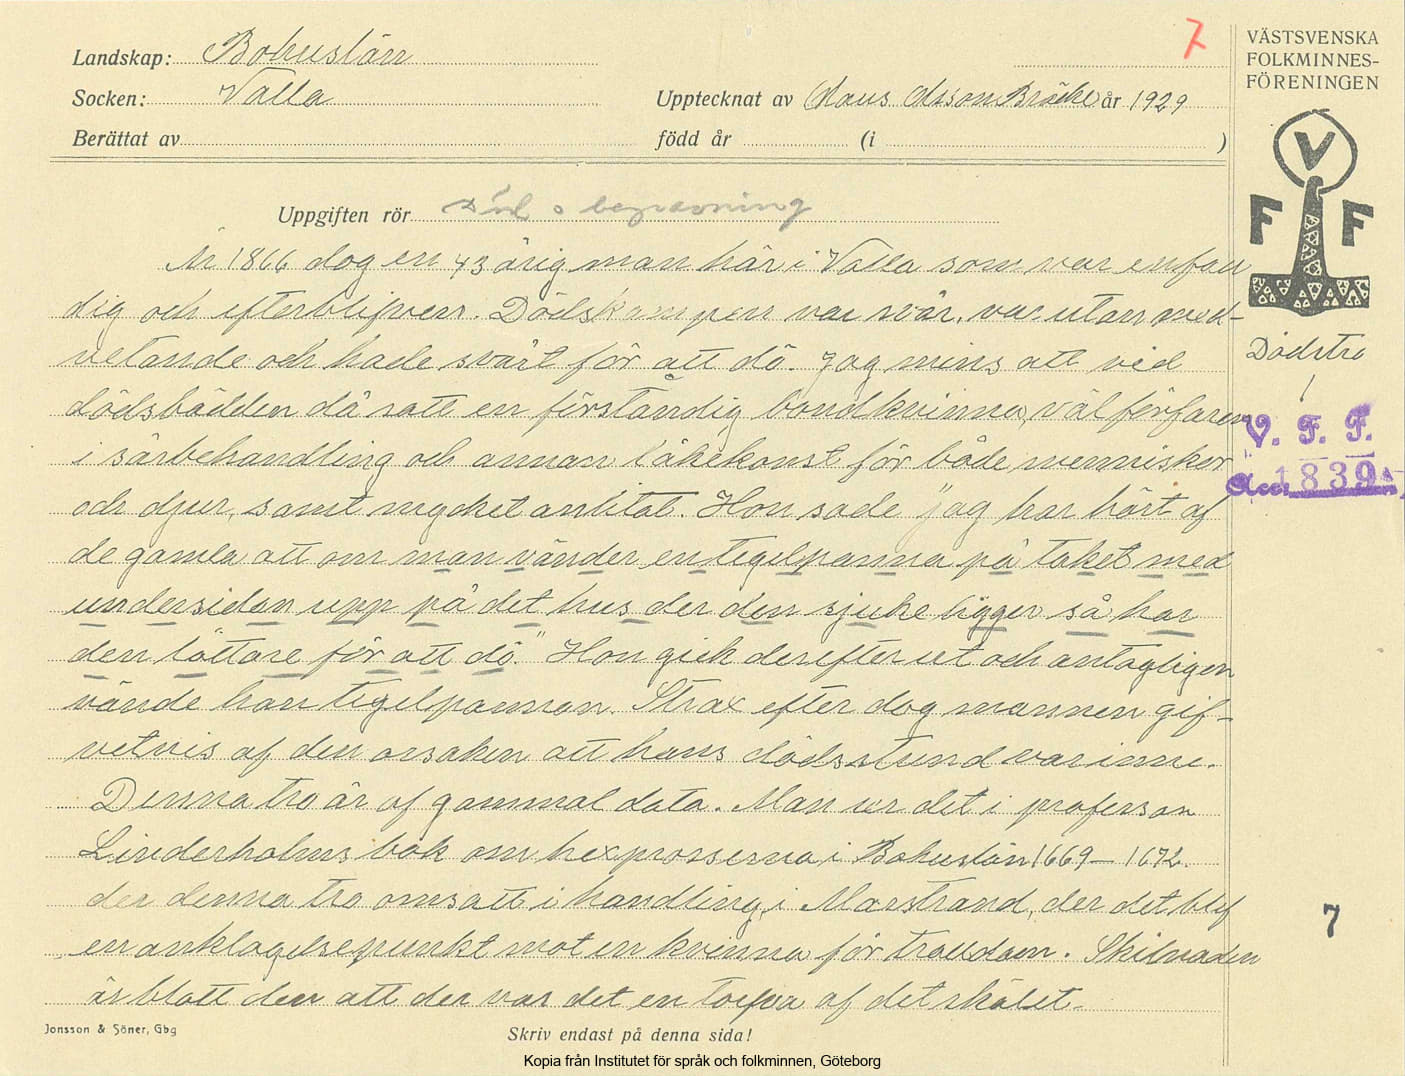 Landskap: Bohuslän
Socken: Valla
Berättat av
Upptecknat av Claus Olsson Bräcke år 1929
född år (i )
7
VÄSTSVENSKA
FOLKMINNES-
FÖRENINGEN
V
F F
Uppgiften rör Död o begravning
År 1866 dog en 43 årig man här i Valla som var enfal
dig och efterblifven. Dödskampen var svår, var utan med-
vetande och hade svårt för att dö. Jag mins att vid
dödsbädden då satt en förståndig bondkvinna, väl förfaren
i sårbehandling och annan läkekonst för både menniskor
och djur, samt mycket anlitat. Hon sade "jag har hört af
de gamla att om man vänder en tegelpanna på taket med
undersidan upp på det hus der den sjuke ligger så har
den lättare för att dö." Hon gick derefter ut och antagligen
vände hon tegelpannan. Strax efter dog mannen gif-
vetvis af den orsaken att hans dödsstund var inne.
Denna tro är af gammal data. Man ser det i professor
Linderholms bok om hexprosserna i Bohuslän 1669–1672.
der denna tro omsatt i handling, i Marstrand, der det blif
en anklagelsepunkt mot en kvinna för trolldom. Skilnaden
är blott den att der var det en torfva af det skälet.
Dödstro
V. F. F.
Acc. 1839
7
Jonsson & Söner, Gbg
Skriv endast på denna sida!
Kopia från Institutet för språk och folkminnen, Göteborg